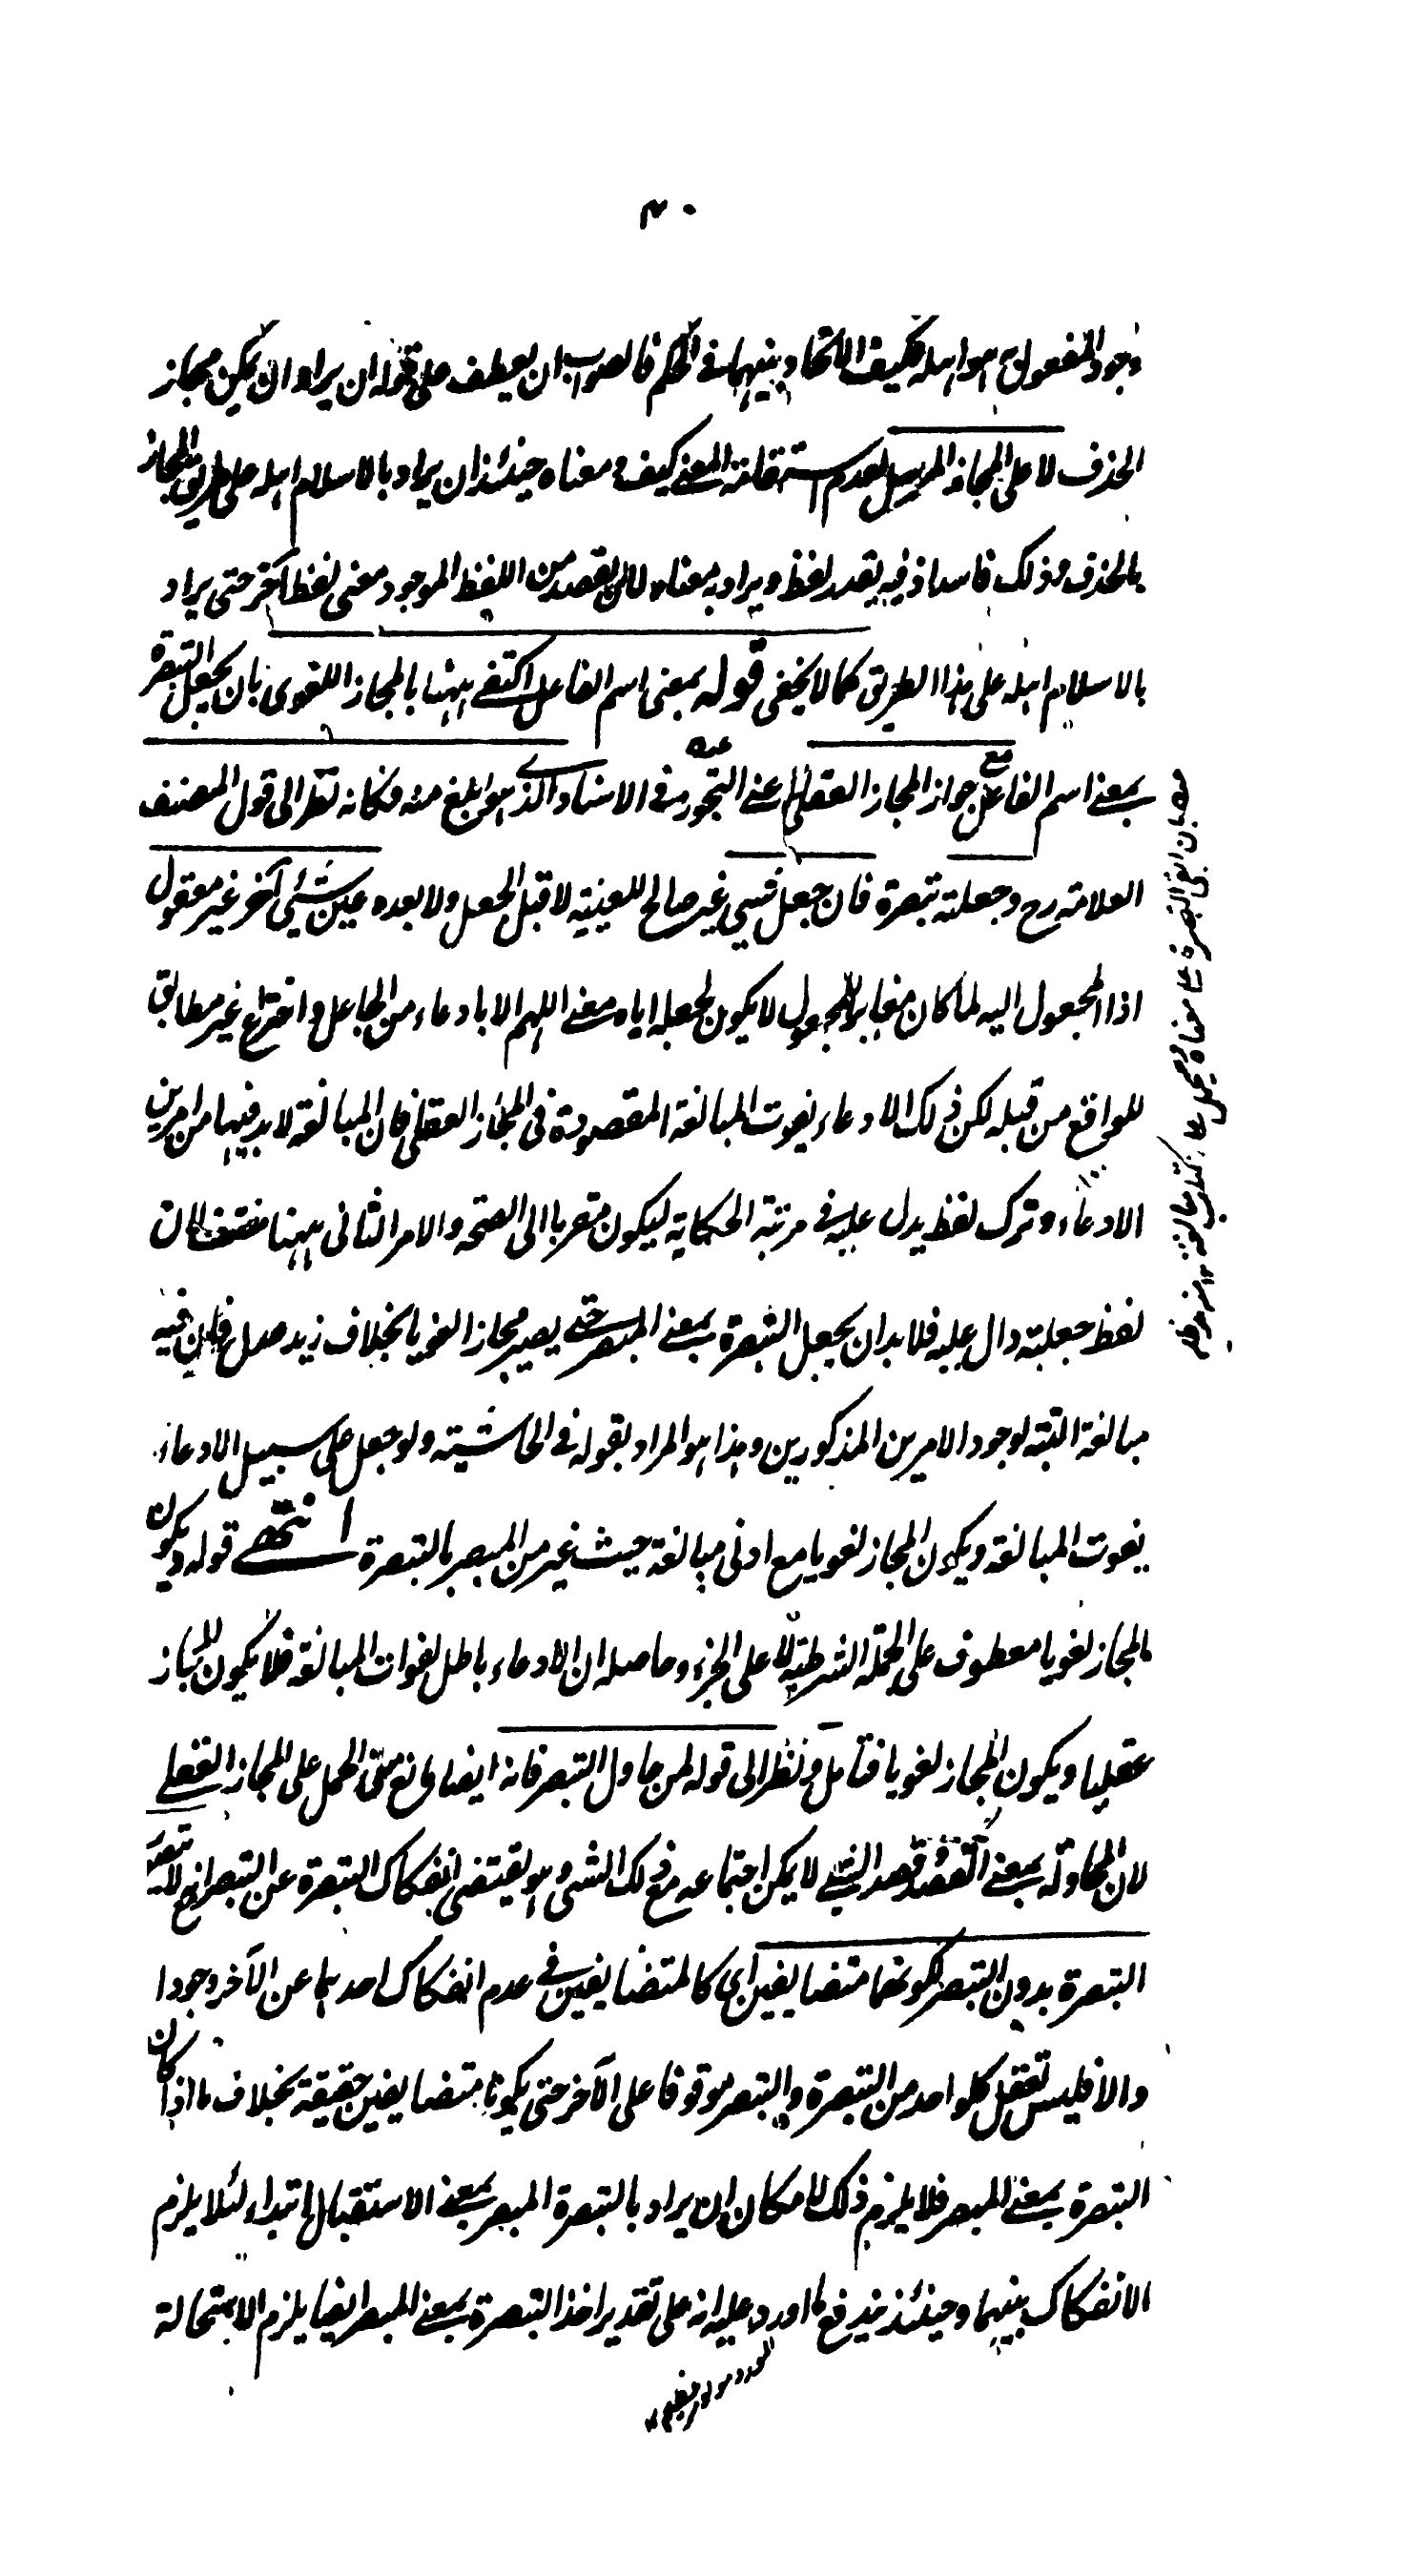 ۴۰
وجود المفعول هو اهله فكيف الاتحاد بينهما في الحكم فالصواب ان يعطف على قوله ان يراد ان يكون مجاز
الحذف لا على المجاز المرسل لعدم استقامة المعنى كيف ومعناه حينئذ ان يراد بالاسلام اهله على طريق المجاز
بالحذف وذلك فاسد اذ فيه يقدر لفظ ويراد به معناه لا ان يقصد من اللفظ الموجود معنى لفظ آخر حتى يراد
بالاسلام اهله على هذا الطريق كما لا يخفى قوله بمعنى اسم الفاعل اكتفى ههنا بالمجاز اللغوي بان يجعل التبصرة
بمعنى اسم الفاعل مع جواز المجاز العقلي اعني التجوز في الاسناد الذي هو ابلغ منه فكانه نظر الى قول المصنف
العلامة رح وجعلته تبصرة فان جعل شيء غير صالح للعينية لا قبل الجعل ولا بعده عين شيء آخر غير معقول
اذ المجعول اليه لما كان مغايرا للمجعول لا يكون لجعله اياه معنى اللهم الا بادعاء من الجاعل واختراع غير مطابق
للواقع من قبله لكن ذلك الادعاء يفوت المبالغة المقصودة في المجاز العقلي فان المبالغة لا بد فيها من امرين
الادعاء وترك لفظ يدل عليه في مرتبة الحكاية ليكون مقربا الى الصحة والامر الثاني ههنا منتف لان
لفظ جعلته دال عليه فلا بد ان يجعل التبصرة بمعنى المبصر حتى يصير مجازا لغويا بخلاف زيد عدل فان فيه
مبالغة البتة لوجود الامرين المذكورين وهذا هو المراد بقوله في الحاشية ولو جعل على سبيل الادعاء
يفوت المبالغة ويكون المجاز لغويا مع ادنى مبالغة حيث غير من المبصر بالتبصرة انتهى قوله ويكون
المجاز لغويا معطوف على الجملة الشرطية لا على الجزء وحاصله ان الادعاء باطل لفوات المبالغة فلا يكون المجاز
عقليا ويكون المجاز لغويا فتامل ونظر الى قوله لمن حاول التبصر فانه ايضا مانع عن الحمل على المجاز العقلي
لان المحاولة بمعنى القصد وقصد الشيء لا يمكن اجتماعه مع ذلك الشيء وهو يقتضي انفكاك التبصرة عن التبصر مع انه لا يتصور
التبصرة بدون التبصر لكونهما متضايفين اي كالمتضايفين في عدم انفكاك احدهما عن الآخر وجودا
والا فليس تعقل كل واحد من التبصرة والتبصر موقوفا على الآخر حتى يكونا متضايفين حقيقة بخلاف ما اذا كان
التبصرة بمعنى المبصر فلا يلزم ذلك لامكان ان يراد بالتبصرة المبصر بمعنى الاستقبال ابتداء لئلا يلزم
الانفكاك بينهما وحينئذ يندفع ما اورد عليه انه على تقدير اخذ التبصرة بمعنى المبصر ايضا يلزم الاستحالة
عه بان ابقى التبصرة على معناه ويحمل على الكتاب مبالغة ۱۲ منه